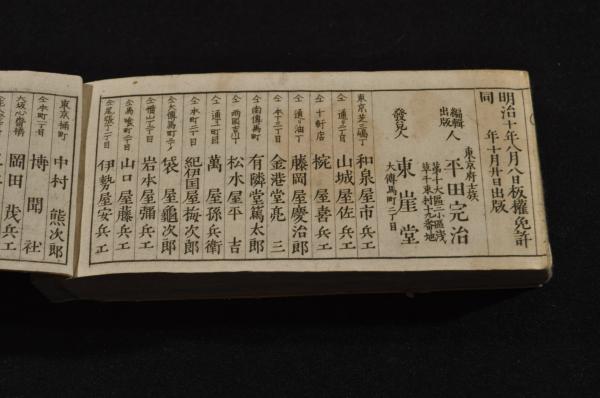 明治十年八月八日板權免許
同年十月廿日出版
編輯出版人
東京府士族
平田完治
第十大區二小區淺
草千束村十九番地
發兌人
東崖堂
大傳馬町二丁目
東京芝三嶋丁 和泉屋市兵衛
仝 通二丁目 山城屋佐兵衛
仝 十軒店 椀屋喜兵衛
仝 通り油丁 藤岡屋慶治郎
仝 本丁三丁目 金港堂亮三
仝 南傳馬町 有隣堂篤太郎
仝 両國吉川丁 松木屋平吉
仝 通三丁目 萬屋孫兵衛
仝 本町二丁目 紀伊国屋梅次郎
仝 大傳馬町二丁メ 袋屋龜次郎
仝 横山三丁目 岩本屋彌兵衛
仝 馬喰町二丁メ 山口屋藤兵衛
仝 尾張丁二丁目 伊勢屋安兵衛
東京桶町 中村熊次郎
仝 本町丁目 博聞社
大坂心齋橋 岡田茂兵衛